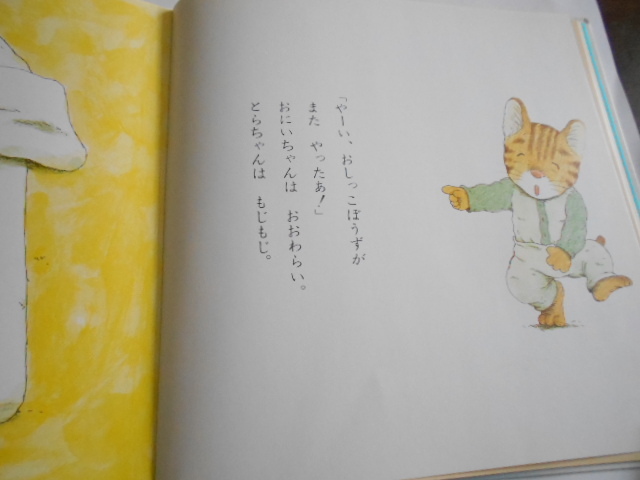 「やーい、おしっこぼうずが
また　やったあ！」
おにいちゃんは　おおわらい。
とらちゃんは　もじもじ。